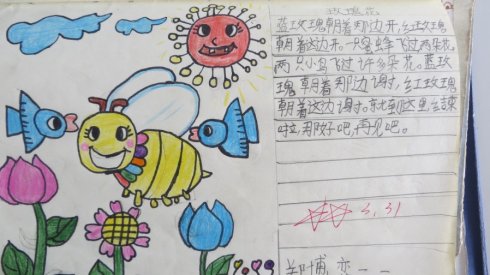 玫瑰花
蓝玫瑰朝着那边开,红玫瑰
朝着这边开。一只蜜蜂飞过两朵花,
两只小鸟飞过许多朵花。蓝玫
瑰朝着那边谢,红玫瑰
朝着这边谢。就到这里结束
啦,那好吧,再见吧。
3.31